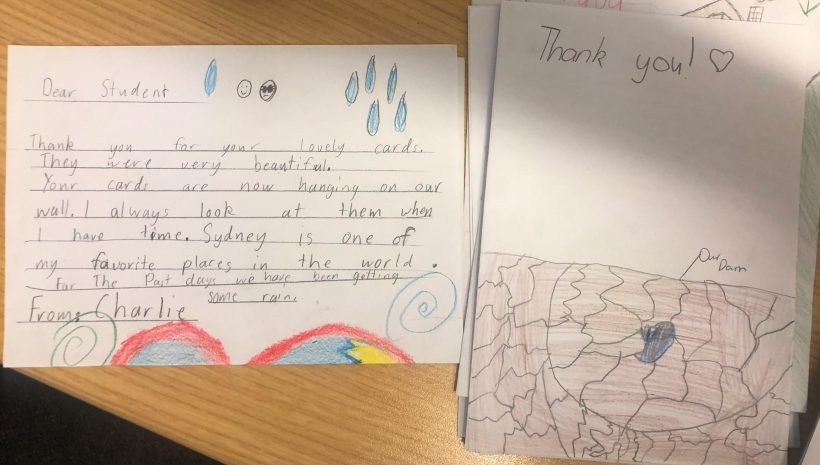 Dear Student
Thank you for your lovely cards.
They were very beautiful.
Your cards are now hanging on our
wall. I always look at them when
I have time. Sydney is one of
my favorite places in the world.
For The Past days we have been getting
some rain.
From, Charlie
Thank you! ♡
Our
Dam